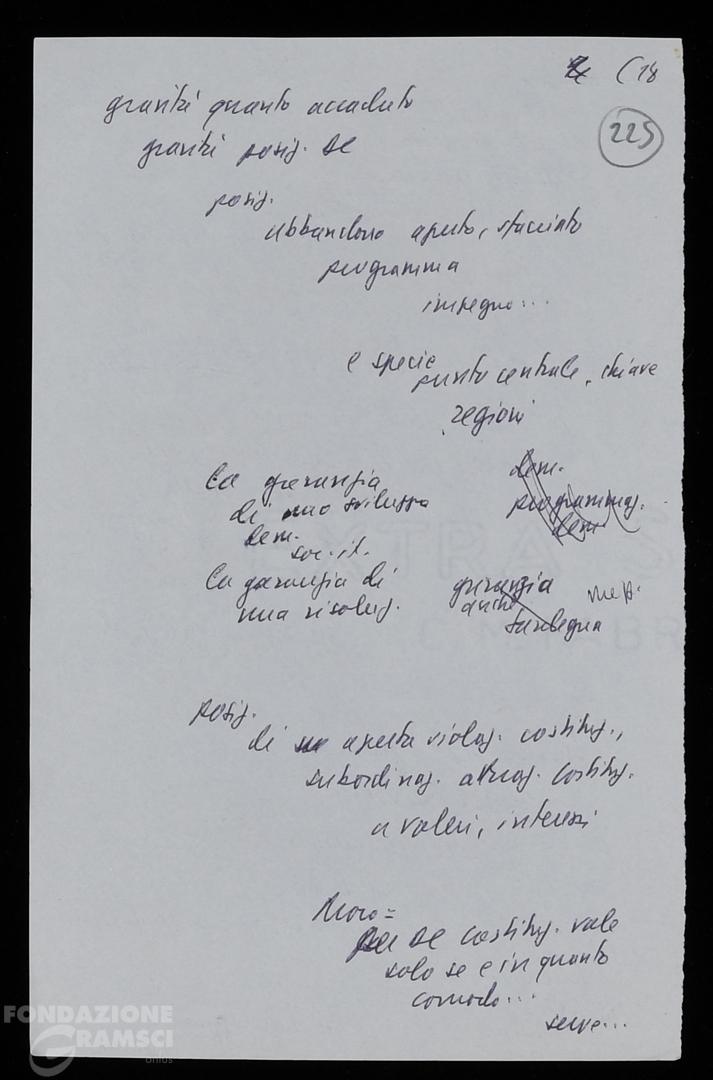 (18
225
gravità quanto accaduto
gravità posiz. DC
posiz.
abbandono aperto, sfacciato
programma
impegno...
e specie
punto centrale, chiave
regioni
La garanzia
di uno sviluppo
dem.
soc. it.
dem.
programmaz.
dem
La garanzia di
una risoluz.
garanzia
anche
Sardegna
posiz.
di aperta violaz. costituz.,
subordinaz. attuaz. costituz.
a valori, interessi
Moro =
per DC costituz. vale
solo se e in quanto
comodo...
serve...
FONDAZIONE
GRAMSCI
onlus
EXTRA S